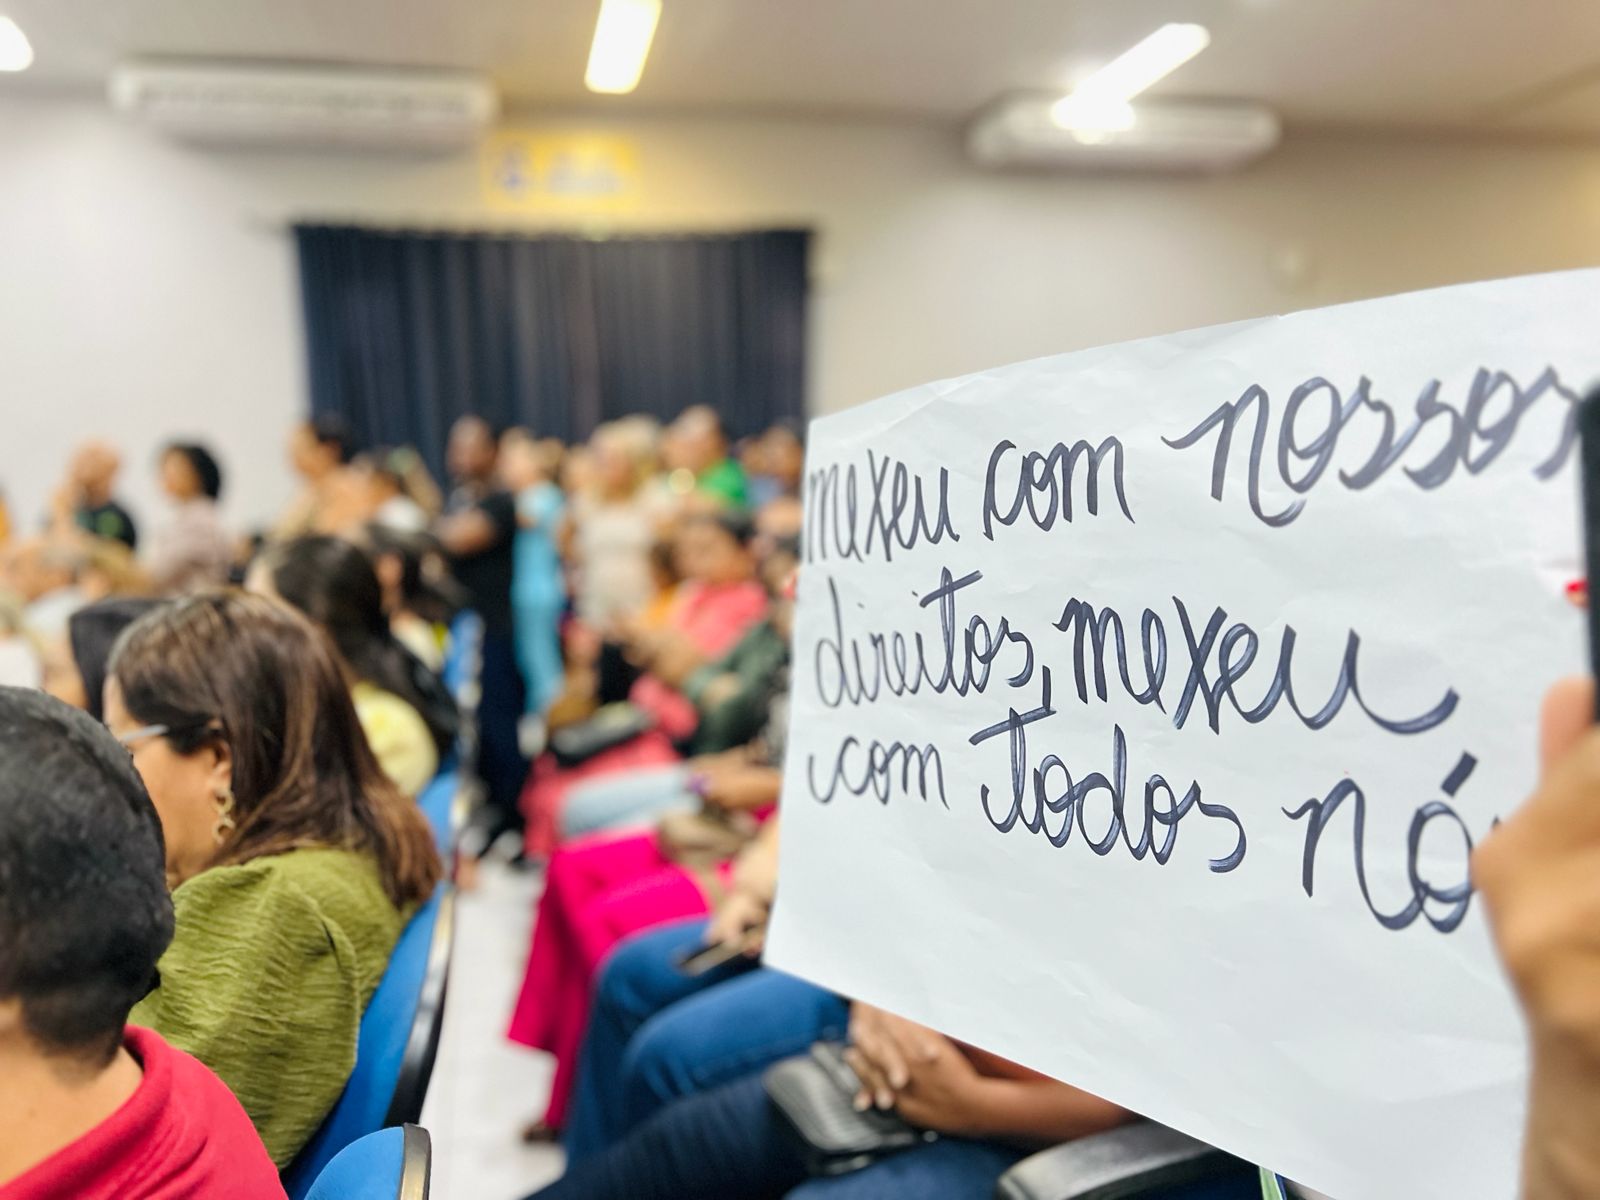 mexeu com nossos
direitos, mexeu
com todos nó